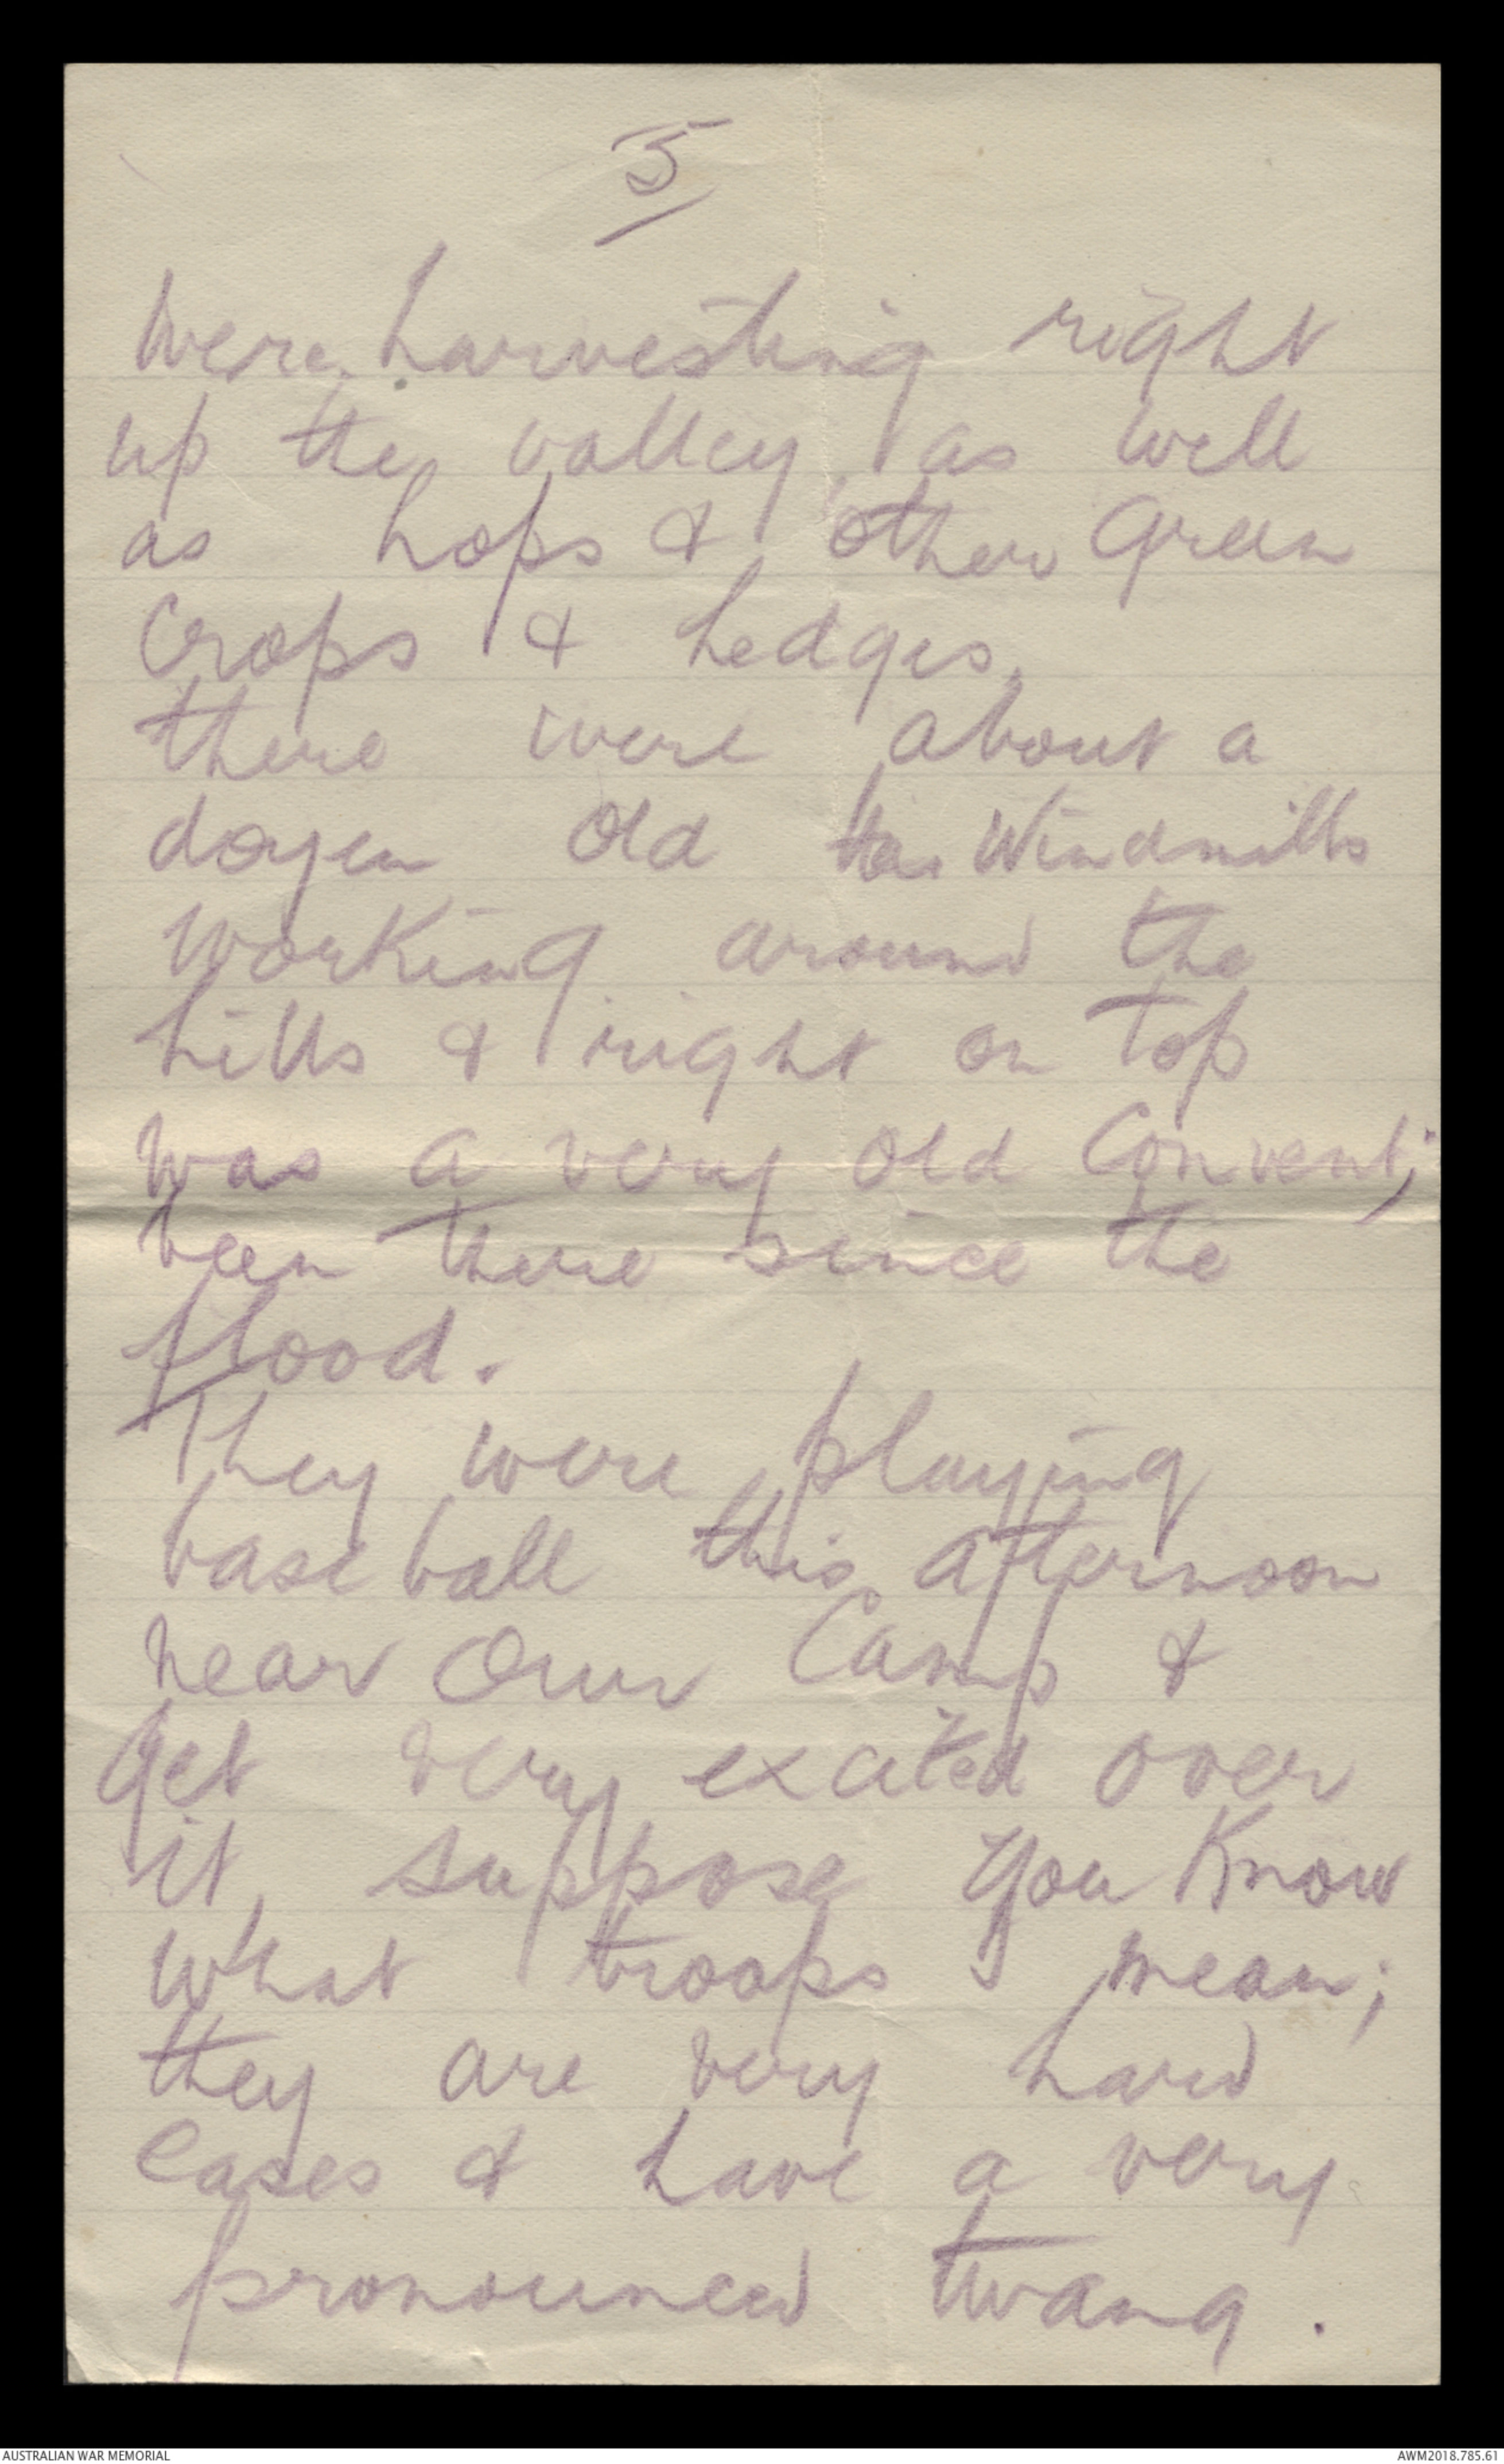 5
were harvesting right
up the valley, as well
as hops & other green
Crops & hedges,
there were about a
dozen old Windmills
working around the
hills & right on top
was a very old Convent;
been there since the
flood.
They were playing
base ball this afternoon
near Our Camp &
get very excited over
it, suppose you Know
what troops mean;
they are very hard
Cases & have a very
pronounced twang.
AUSTRALIAN WAR MEMORIAL
AWM2018.785.61